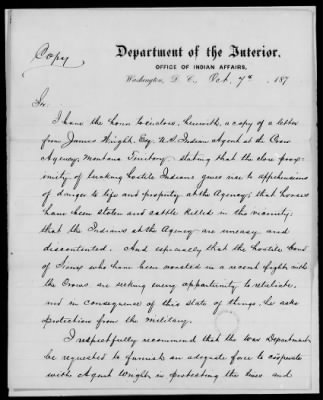 Copy
Department of the Interior,
OFFICE OF INDIAN AFFAIRS,
Washington, D. C., Oct. 7th, 187
Sir:
I have the honor to inclose, herewith, a copy of a letter
from James Wright, Esq. U.S. Indian Agent at the Crow
Agency, Montana Territory, stating that the close prox-
imity of lurking hostile Indians gives rise to apprehensions
of danger to life and property at the Agency; that horses
have been stolen and cattle killed in the vicinity;
that the Indians at the Agency are uneasy and
discontented. And especially that the hostile band
of Sioux who have been worsted in a recent fight with
the Crows are seeking every opportunity to retaliate,
and in consequence of this state of things, he asks
protection from the military.
I respectfully recommend that the War Department
be requested to furnish an adequate force to coöperate
with Agent Wright in protecting the lives and